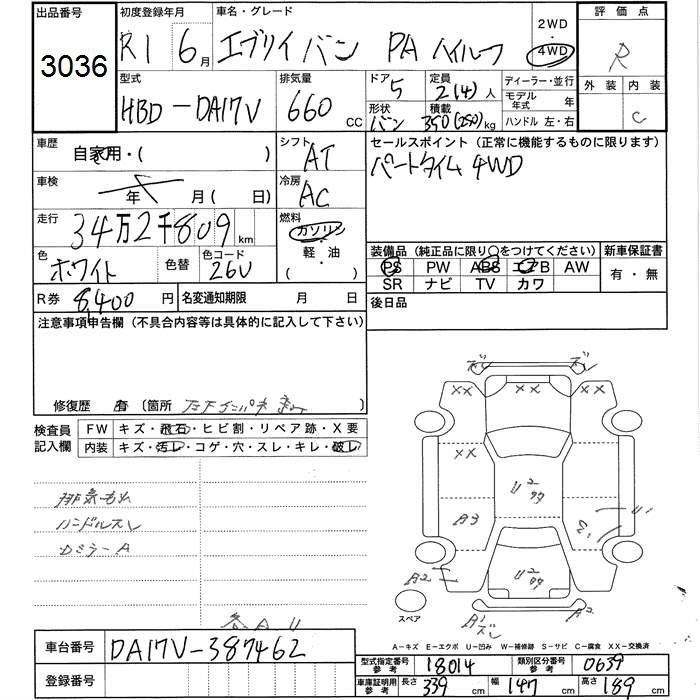 出品番号 初度登録年月 車名・グレード 2WD 評価点
3036 R1 6月 エブリイバン PA ハイルーフ 4WD R
型式 排気量 ドア 定員 ディーラー・並行 外装 内装
HBD-DA17V 660cc 5 2(4)人 モデル年式 年
形状 積載 ハンドル 左・右 C
バン 350(250)kg
車歴 自家用・( ) シフト AT セールスポイント(正常に機能するものに限ります)
パートタイム4WD
車検 年 月(日) 冷房 AC
走行 34万2千809km 燃料 ガソリン
軽・油
( )
色 ホワイト 色替 色コード 26U
装備品(純正品に限り○をつけてください) 新車保証書
PS PW ABS エアB AW 有・無
SR ナビ TV カワ
R券 8,400円 名変通知期限 月 日 後日品
注意事項申告欄(不具合内容等は具体的に記入して下さい)
修復歴 有 (箇所 )
検査員記入欄 FW キズ・飛石・ヒビ割・リペア跡・X要
内装 キズ・汚レ・コゲ・穴・スレ・キレ・破レ
排気もれ
ハンドルスレ
Dミラー A
各A U
ズレ ズレ
XX XX XX
XX
U2 ワク
A3 U1
E1
U2 ワク
A2
スペア
B1 ズレ A2
A−キズ E−エクボ U−凹み W−補修跡 S−サビ C−腐食 XX−交換済
車台番号 DA17V-387462
型式指定番号参考 18014 類別区分番号参考 0639
登録番号
車庫証明用参考 長さ 339cm 幅 147cm 高さ 189cm